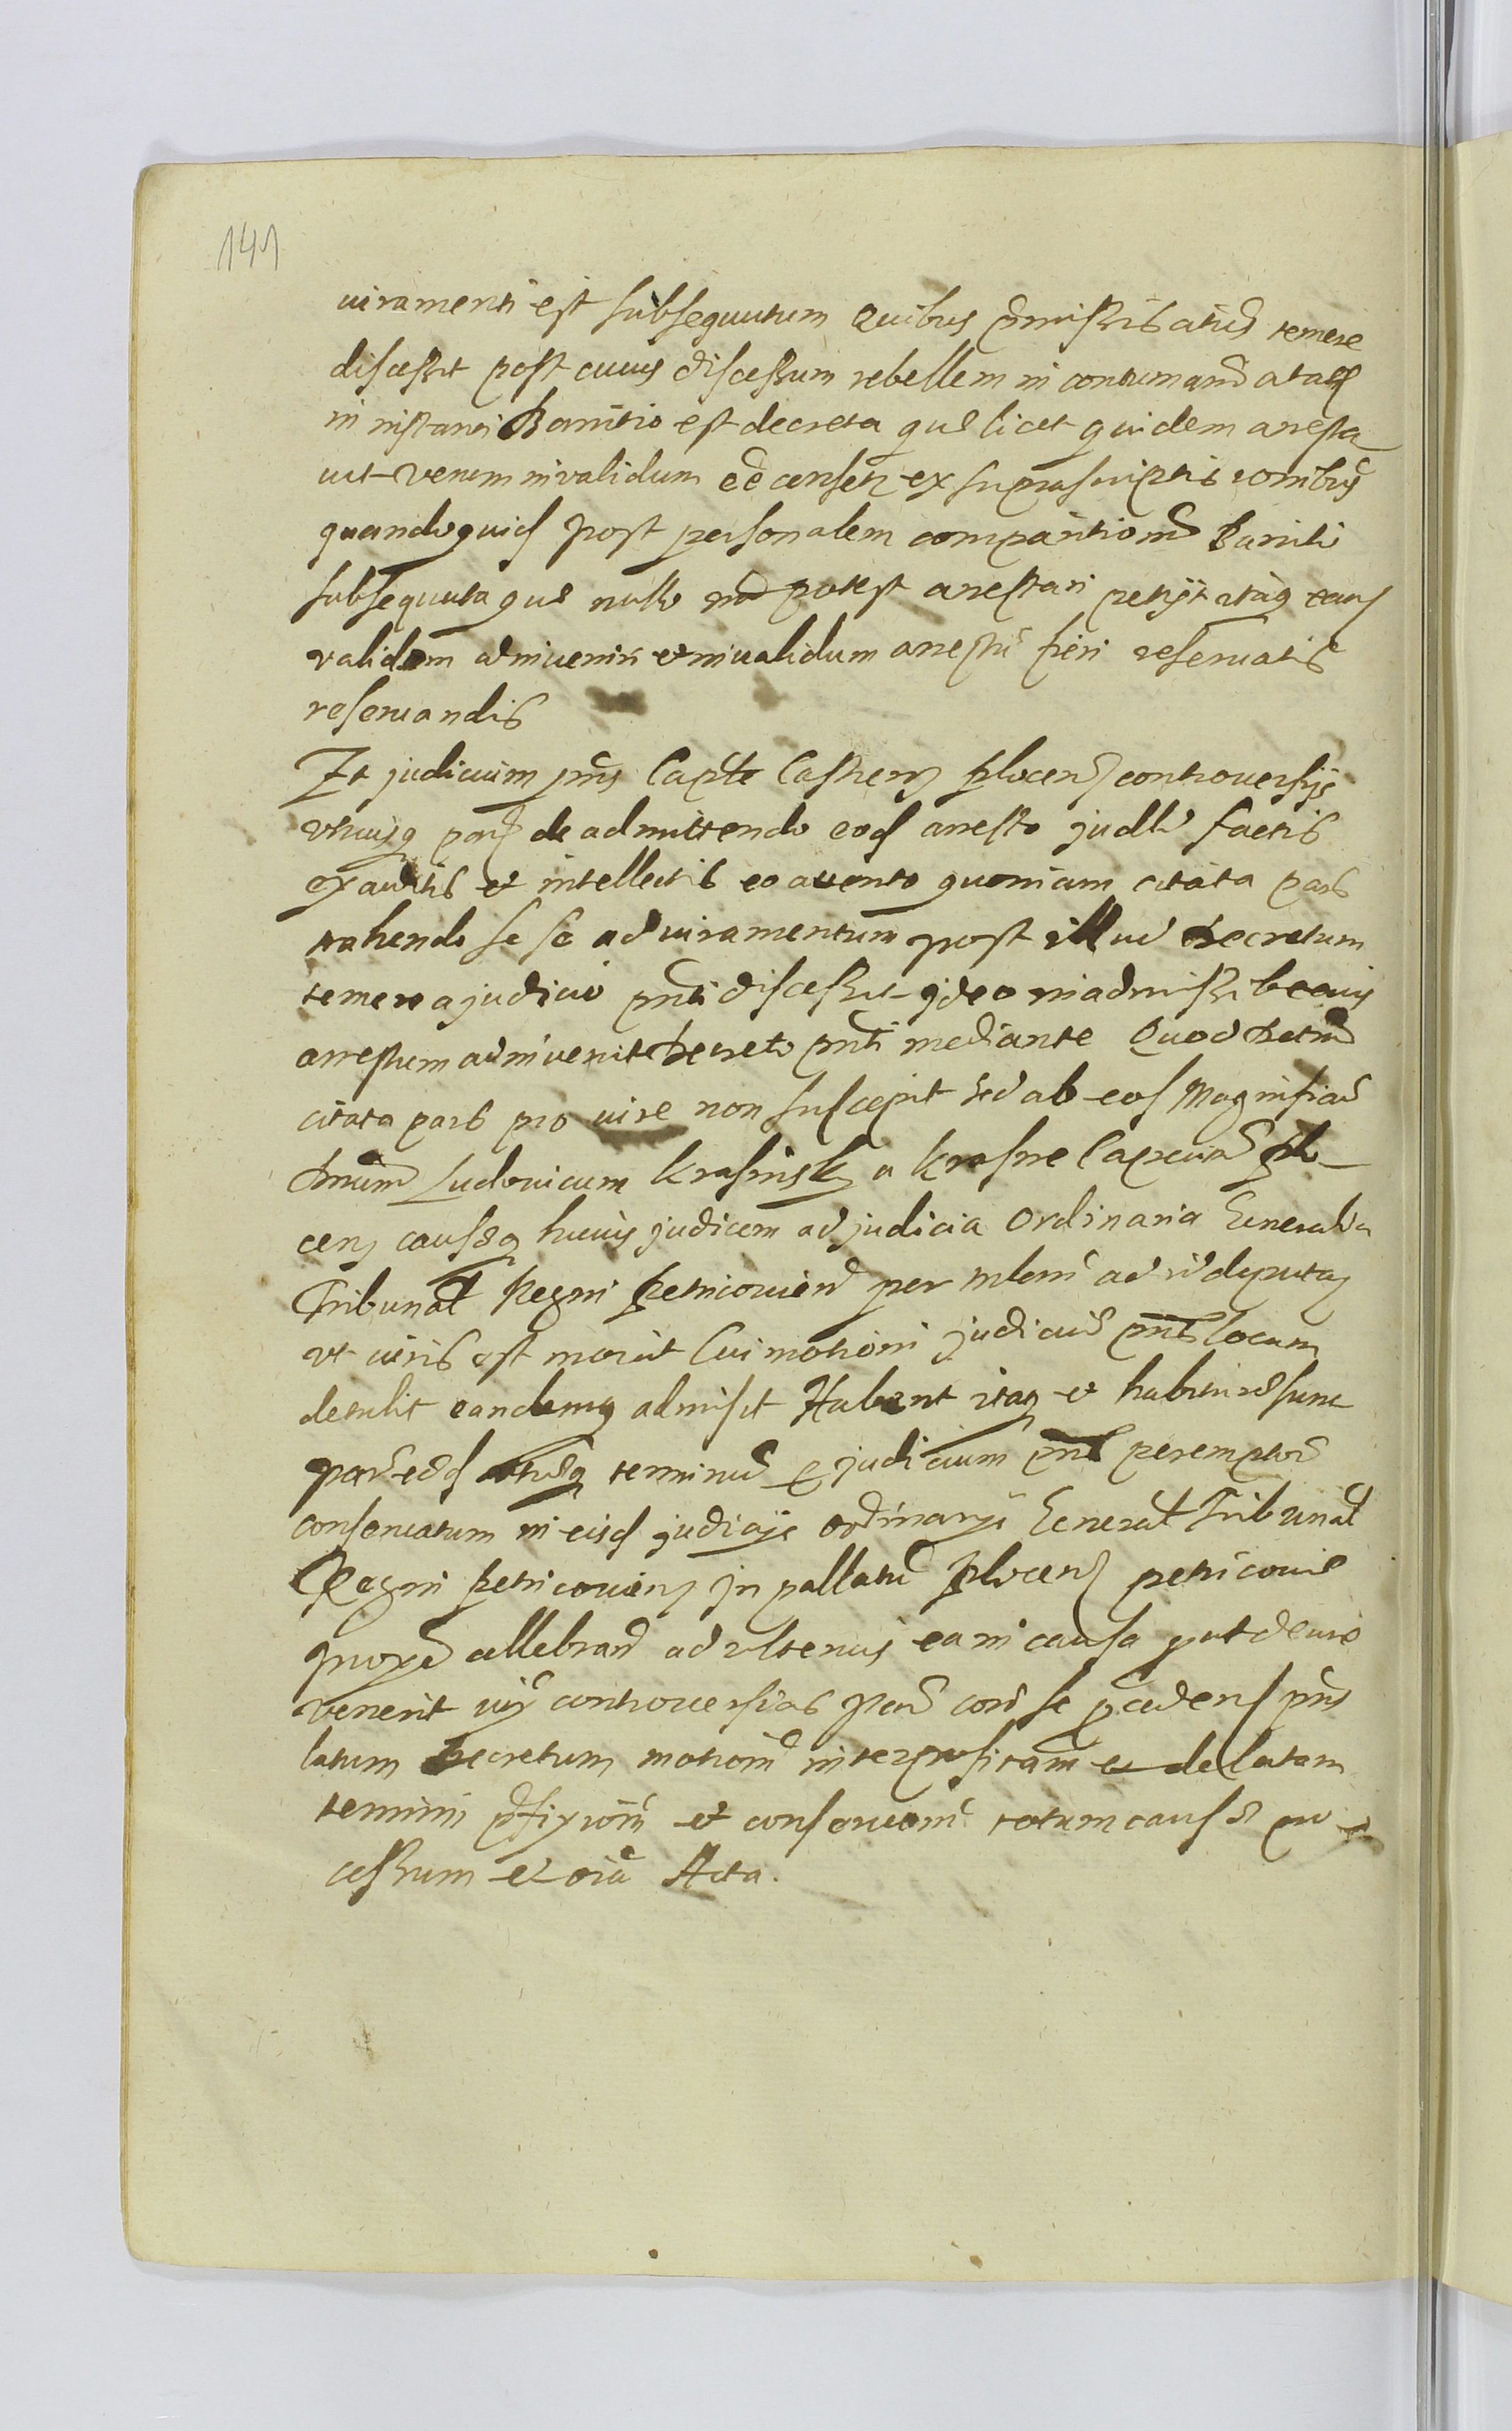 141
iuramenti est subsequutum Quibus pmissis citus temere
discessit post cuius discessum rebellem in contumand atq
in instanti Banitio est decreta que licet quidem aresta
uit verum invalidum eē censetz ex suprascriptis ronibus
quandoquid post personalem comparitionē Baniti
subsequuta que nullo mo potest arestari petijt itaq eam
validam adinveniri et invalidum arestū fieri reservatis
reservandis
Et judicium pns Capte Castren Plocen controversijs
utriusq par de admittendo eod aresto judlr factis
exauditis et intellectis eo attento quoniam citata pars
trahendo se se ad iuramentum post illud Decretum
temere a judicio pnti discessit ideo inadmissibe eius
arrestum adinvenit Decreto pnti mediante Quod Decretū
citata pars pro iure non suscepit sed ab eod Magnifico
Dnum Ludovicum Krasinsky a Krasne Capneū Plo-
cen causaq huius judicem ad judicia Ordinaria Generalia
Tribunal Regni Petricovien per mlem ad id deputaz
ut iuris est movit Cui motioni judiciū pns locum
detulit eandemq admisit Habent itaq et habituræ sunt
par eæd utraq terminū p judicium pns peremptor
conservatum in eisd judicijs ordinarijs General Tribunal
Regni Petricovien In pallatū Plocen Petricoviæ
proxe cellebrand ad ulterius ea in causa put de iure
venerit iuy controversias par cor se pceden pns
latum Decretum motionē interpositam et delatam
termini pfixionē et conservaonē totum causæ pro-
cessum et oia Acta.